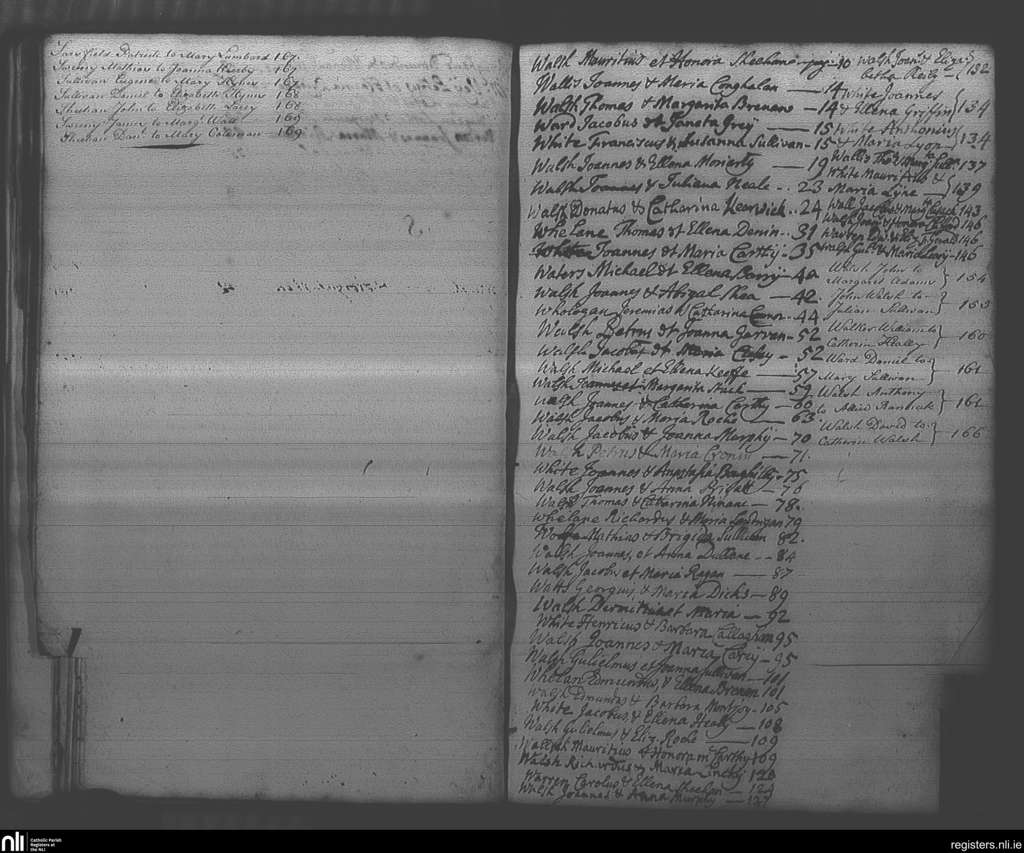 Sarsfield Patrick to Mary Lumbard 167.
Sweeny Mathias to Joanna Kirby 167
Sullivan Eugene to Mary Flynn 167
Sullivan Daniel to Elizabeth Flynn 168
Shehan John to Elizabeth 168
Sweeny James to Margt Wall 169
Shehan Danl to Mary Coleman 169
Walsh Mauritius et Honora Sheehane 10
Wallis Joannes & Maria Conghalan — 14
Walsh Thomas & Margarita Brenane — 14
Ward Jacobus et Janeta Grey — 15
White Franciscus & Susanna Sullivan - 15
Walsh Joannes & Ellena Moriarty — 19
Walsh Joannes & Juliana Neale - 23
Walsh Donatus & Catharina Kerwick .. 24
Whelane Thomas et Ellena Denin - 31
White Joannes et Maria Carthy - 35
Waters Michael et Ellena Barry - 40
Walsh Joannes & Abigal Shea — 42.
Whologan Jeremias & Catharina Connor - 44
Walsh Petrus et Joanna Garvan - 52
Walsh Jacobus et Maria Casey - 52
Walsh Michael et Ellena Keeffe — 57
Walsh Joannes et Margarita Stack — 59
Walsh Joannes & Catharina Carthy — 60
Walsh Jacobus & Maria Roche — 63
Walsh Jacobus & Joanna Murphy - 70
Walsh Petrus & Maria Cronin — 71.
White Joannes & Anastasia - 75
Walsh Joannes & Anna — 76
Walsh Thomas & Catharina Ninane — 78.
Whelane Richardus & Maria Londrigan 79
Mathias & Brigida Sullivan 82.
Walsh Joannes, et Anna Dullane - 84
Walsh Jacobus et Maria Ragan — 87
Watts Georgius, & Maria Dicks — 89
Walsh Dermitius et Maria — 92
White Henricus & Barbara Callaghan 95
Walsh Joannes & Maria Carey - 95
Walsh Gulielmus et Joanna Sullivan — 101
Whelan Edmundus, & Ellena Brenan 101
Walsh Edmundus & Barbara Montjoy - 105
White Jacobus, & Ellena Healy — 108
Walsh Gulielmus & Eliz. Roche — 109
Wallsh Mauritius & Honora mcCarthy 109
Walsh Richardus & Maria Linchy 120
Warren Carolus & Ellena Sheehan — 124
Walsh Joannes & Anna Murphy — 127
Walsh Joan: & Eliza
betha Reily } 132
White Joannes
& Ellena Griffin } 134
White Anthonius
& Maria Lyon } 134
Wallis 137
White Mauritius &
Maria Lyne } 139
Wall Jacobus & 143
Walsh Joan: & Honora 146
Warren & Fitzgerald 146
Walsh Gul: & Maria Leary - 146
Walsh John to
Margaret Adams } 154
John Walsh to
Julian Sullivan } 163
William to
Catherin Healey } 160
Ward Daniel to
Mary Sullivan } 161
Walsh Anthony
to Alice } 161
Walsh David to
Catherin Walsh } 166
nli
Catholic Parish
Registers at
the NLI
registers.nli.ie